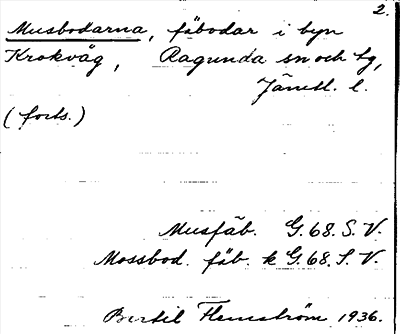 2.
Musbodarna, fäbodar i byn
Krokvåg, Ragunda sn och tg,
Jämtl. l.
(forts.)
Musfäb. G.68.S.V.
Mossbod. fäb. k G.68.S.V.
Bertil Flemström 1936.